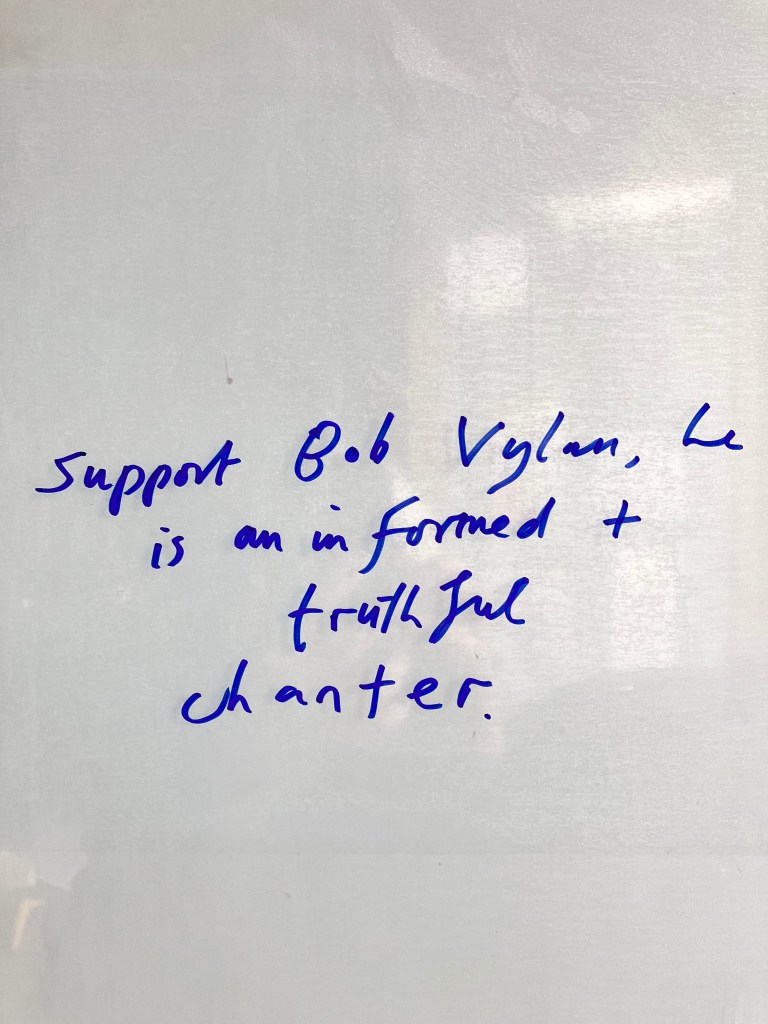 Support Bob Vylan, he
is an informed +
truthful
chanter.